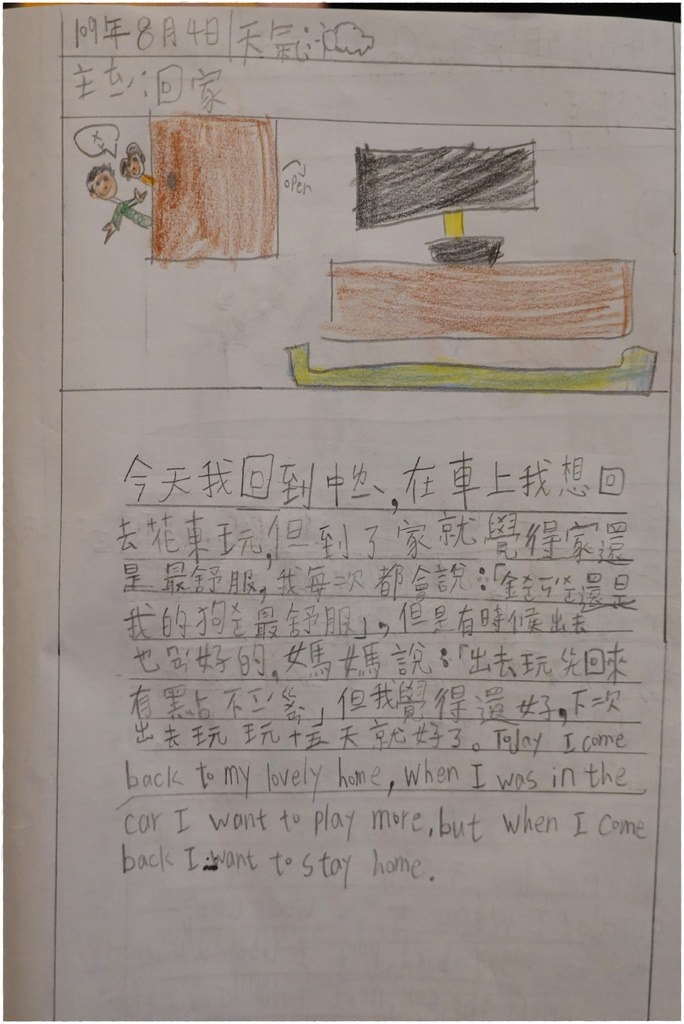 109年8月4日 天氣:
主ㄊㄧˊ:回家
open
今天我回到中ㄌㄧˋ,在車上我想回
去花東玩,但到了家就覺得家還
是最舒服,我每次都會說:「還是
我的狗 最舒服」,但是有時候出去
也 好的,媽媽說:「出去玩 回來
有點不 」但我覺得還好,下次
出去玩玩十五天就好了。Today I come
back to my lovely home, when I was in the
car I want to play more, but when I come
back I want to stay home.